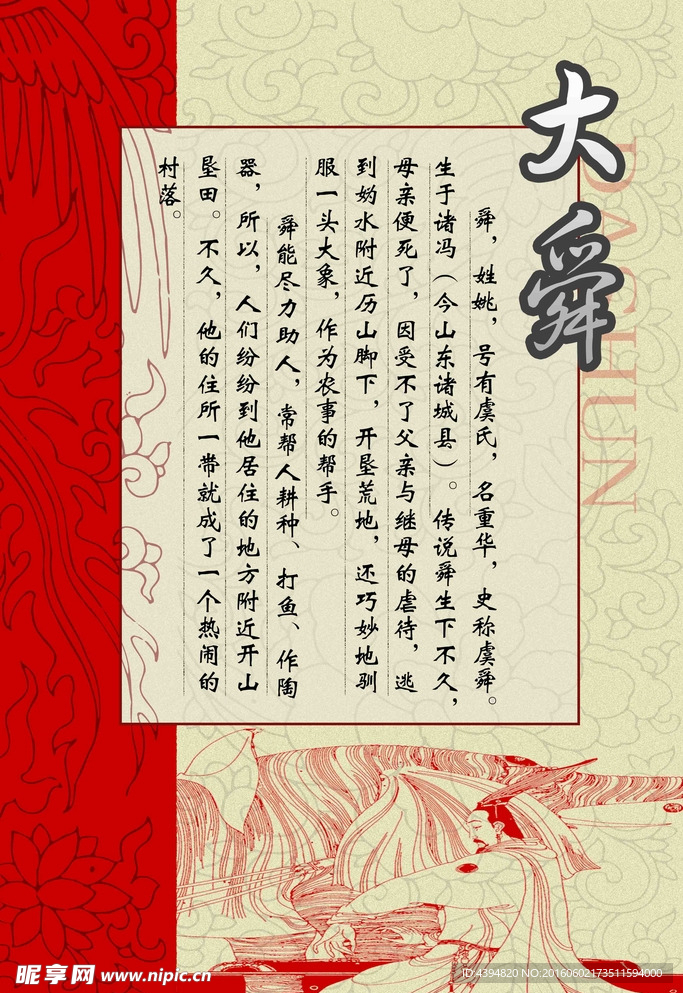 大舜
DASHUN
舜，姓姚，号有虞氏，名重华，史称虞舜。
生于诸冯（今山东诸城县）。传说舜生下不久，
母亲便死了，因受不了父亲与继母的虐待，逃
到妫水附近历山脚下，开垦荒地，还巧妙地驯
服一头大象，作为农事的帮手。
舜能尽力助人，常帮人耕种、打鱼、作陶
器，所以，人们纷纷到他居住的地方附近开山
垦田。不久，他的住所一带就成了一个热闹的
村落。
昵享网 www.nipic.cn
ID:4394820 NO:20160602173511594000